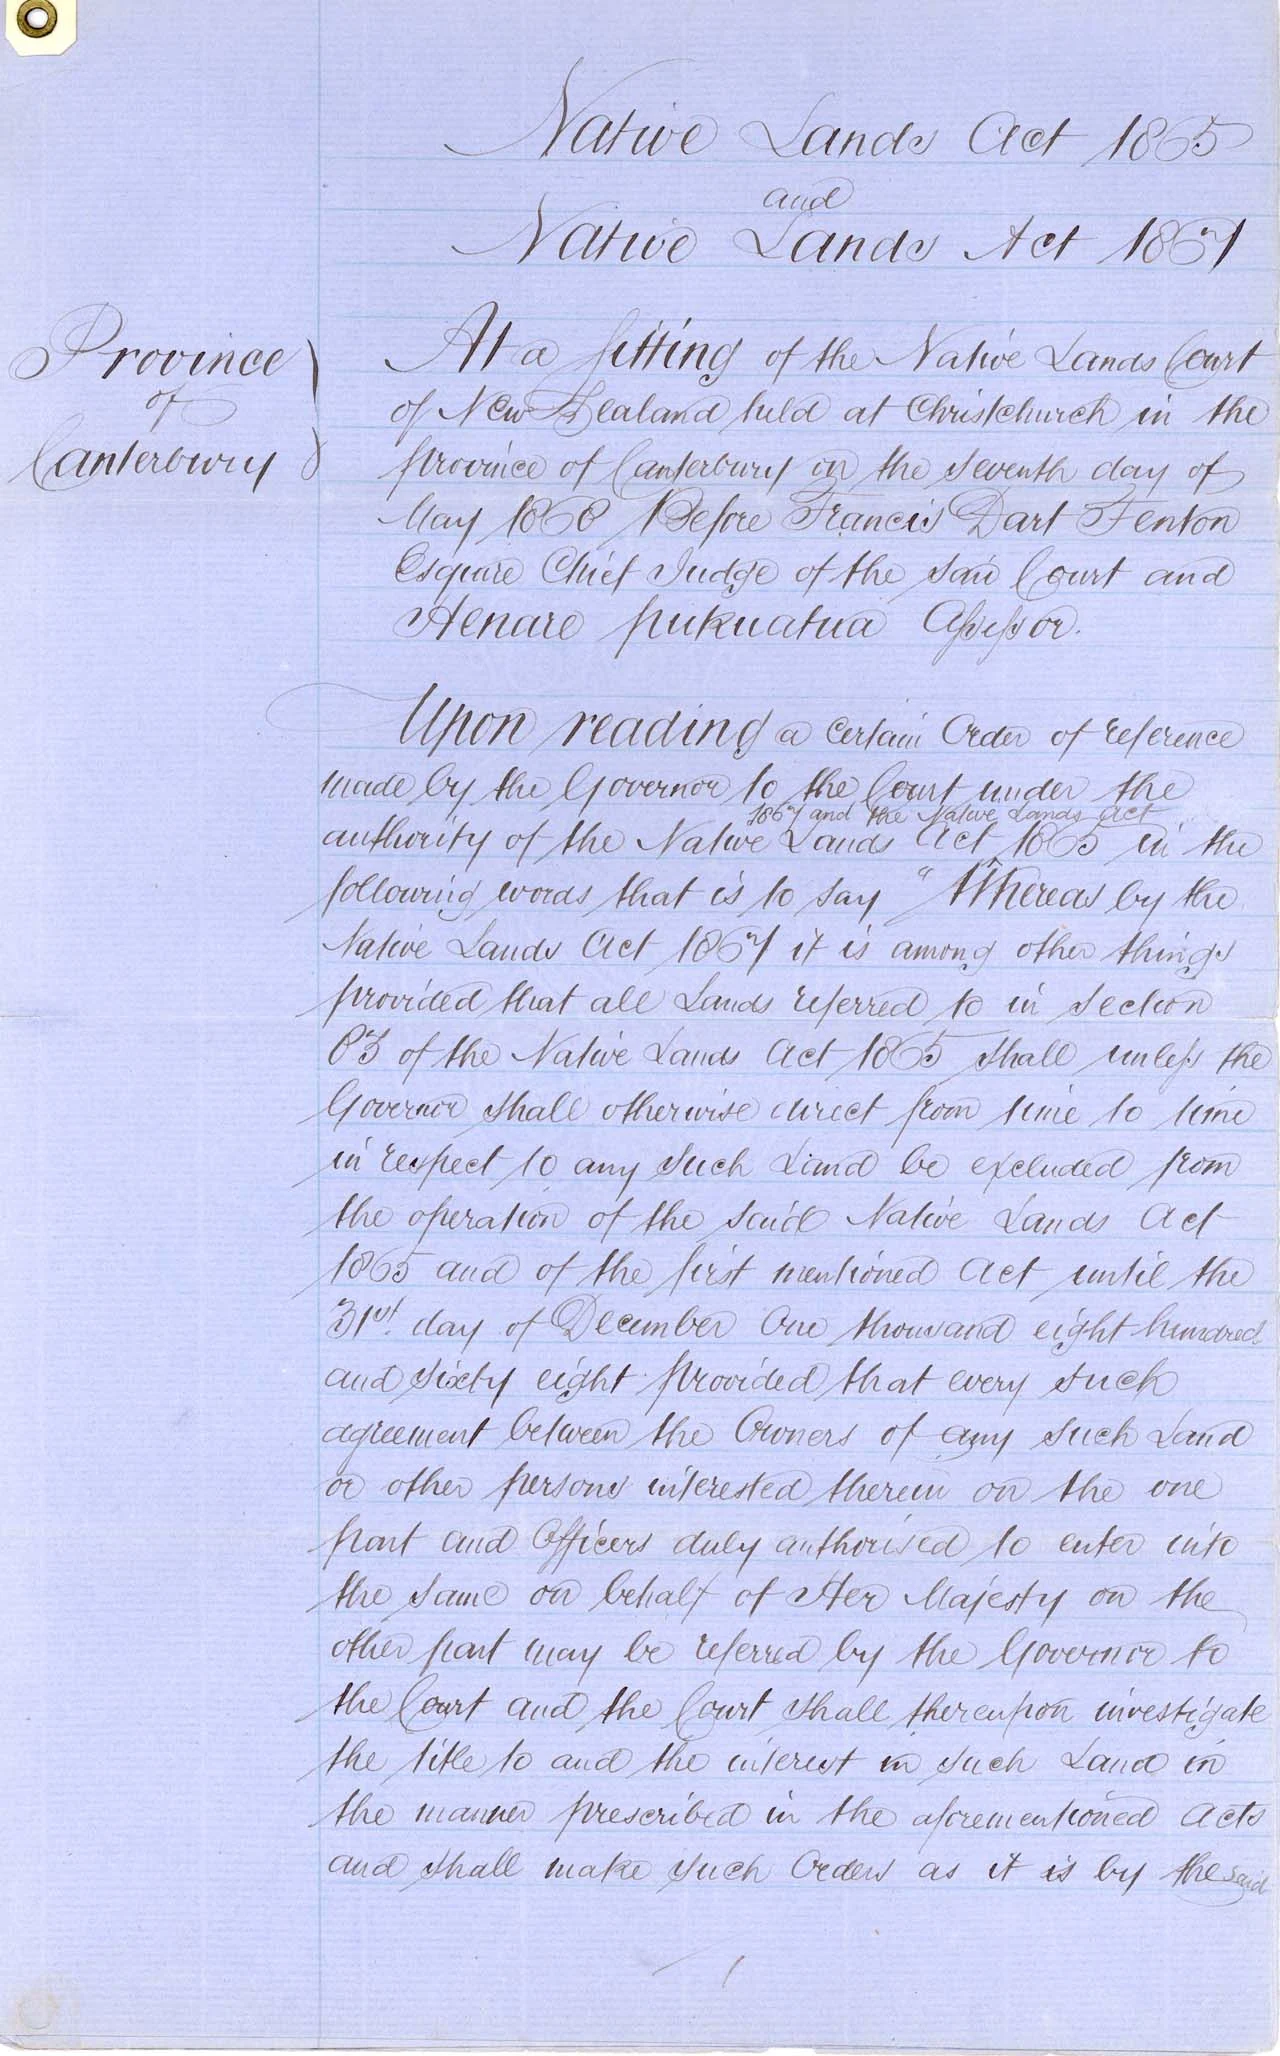 Native Lands Act 1865
and
Native Lands Act 1867
Province
of
Canterbury
At a sitting of the Native Lands Court
of New Zealand held at Christchurch in the
province of Canterbury on the seventh day of
May 1868 Before Francis Dart Fenton
Esquire Chief Judge of the said Court and
Henare Pukuatua Assessor.
Upon reading a certain Order of reference
made by the Governor to the Court under the
1867 and the Native Lands Act
authority of the Native Lands Act 1865 in the
following words that is to say "Whereas by the
Native Lands Act 1867 it is among other things
provided that all Lands referred to in section
83 of the Native Lands Act 1865 shall unless the
Governor shall otherwise direct from time to time
in respect to any such Land be excluded from
the operation of the said Native Lands Act
1865 and of the first mentioned Act until the
31st. day of December One thousand eight hundred
and sixty eight provided that every such
agreement between the Owners of any such Land
or other persons interested therein on the one
part and Officers duly authorised to enter into
the same on behalf of Her Majesty on the
other part may be referred by the Governor to
the Court and the Court shall thereupon investigate
the title to and the interest in such Land in
the manner prescribed in the aforementioned Acts
and shall make such Orders as it is by the said
1